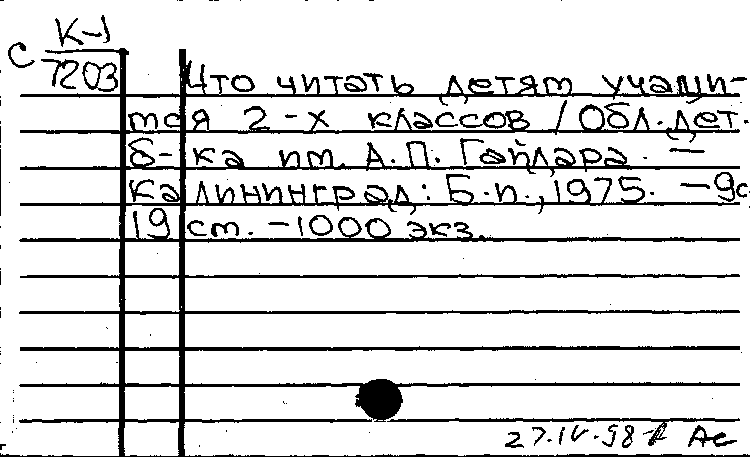 с К-1
7203
Что читать детям учащи-
тся 2-х классов / Обл. дет.
б-ка им. А.П. Гайдара. —
Калининград: Б.и., 1975. — 9с
19 ст. — 1000 экз.
27.IV.98